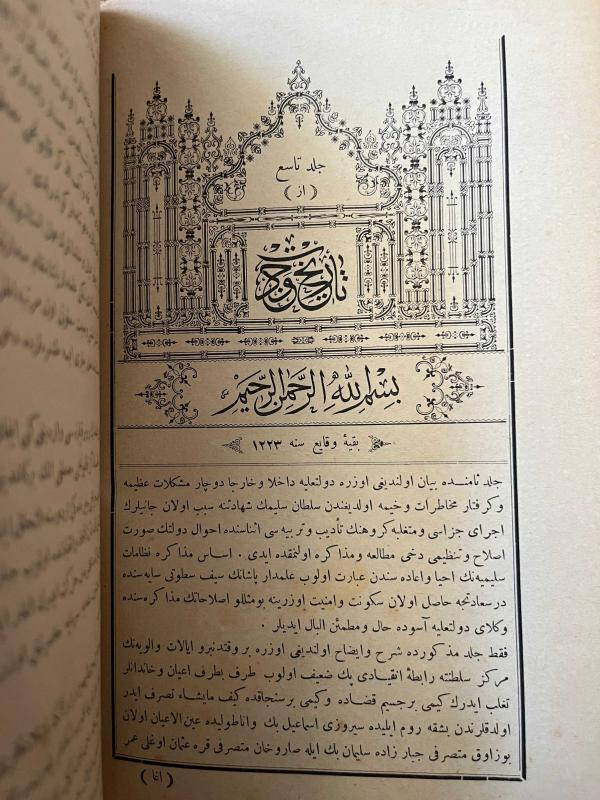 جلد تاسع
( از )
تاريخ جودت
بسم الله الرحمن الرحيم
بقيۀ وقايع سنه ١٢٢٣
جلد ثامنده بيان اولنديغى اوزره دولتعليه داخلا وخارجا دوچار مشكلات عظيمه
وكرفتار مخاطرات وخيمه اولديغندن سلطان سليمك شهادتنه سبب اولان جانيلرك
اجراى جزاسى ومتغلبه كروهنك تأديب وتربيه سى اثناسنده احوال دولتك صورت
اصلاح وتنظيمى دخى مطالعه ومذاكره اولنمقده ايدى . اساس مذاكره نظامات
سليميه نك احيا واعاده سندن عبارت اولوب علمدار پاشانك سيف سطوتى سايه سنده
درسعادتجه حاصل اولان سكونت وامنيت اوزرينه بومثللو اصلاحاتك مذاكره سنده
وكلاى دولتعليه آسوده حال ومطمئن البال ايديلر .
فقط جلد مذكورده شرح وايضاح اولنديغى اوزره بروقتدنبرو ايالات والويه نك
مركز سلطنته رابطۀ انقيادى پك ضعيف اولوب طرف بطرف اعيان وخاندانلر
تغلب ايدرك كيمى برجسيم قضاده وكيمى برسنجاقده كيف مايشاء تصرف ايدر
اولدقلرندن بشقه روم ايليده سيروزى اسماعيل بك واناطوليده عين الاعيان اولان
بوزاوق متصرفى جبار زاده سليمان بك ايله صاروخان متصرفى قره عثمان اوغلى عمر
( اغا )